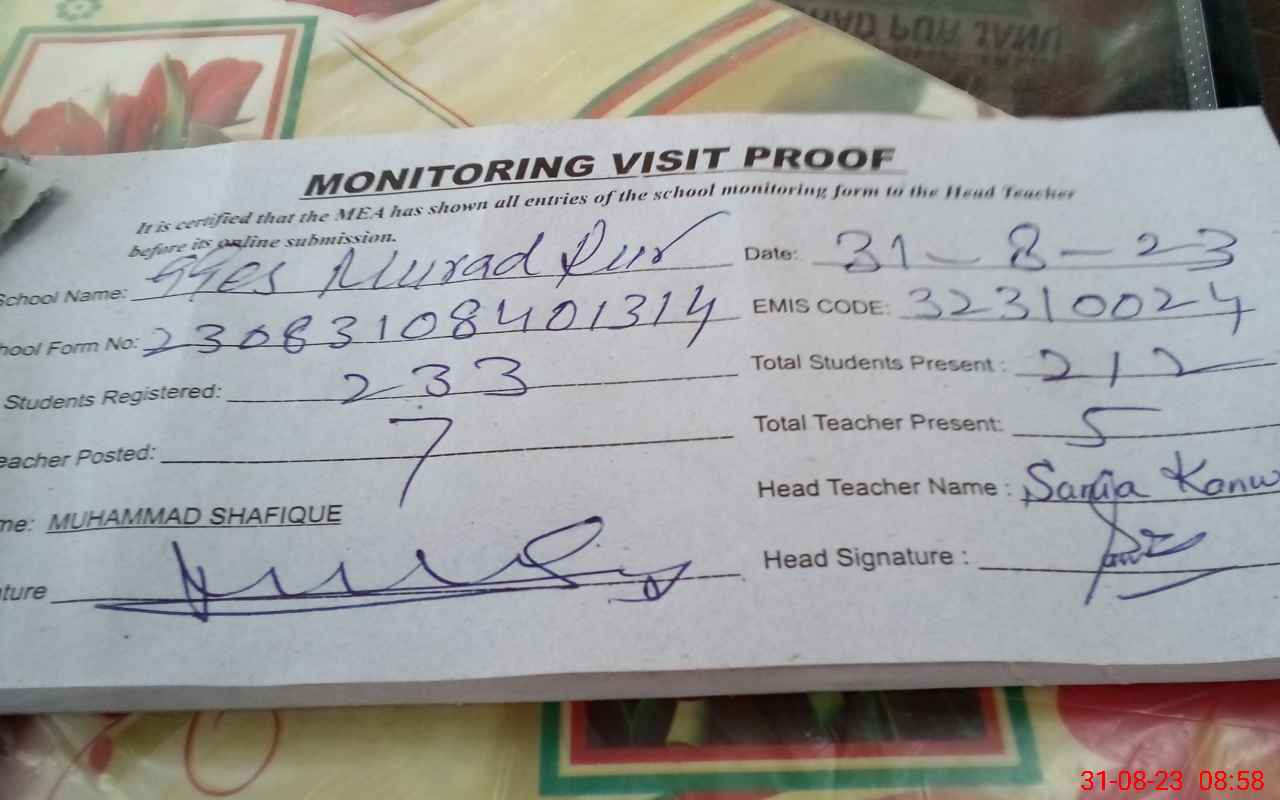 MONITORING VISIT PROOF
It is certified that the MEA has shown all entries of the school monitoring form to the Head Teacher
before its online submission.
School Name: GGES Murad Pur
Date: 31-8-23
hool Form No: 23083108401314
EMIS CODE: 32310024
Students Registered: 233
Total Students Present : 212
eacher Posted: 7
Total Teacher Present: 5
me: MUHAMMAD SHAFIQUE
Head Teacher Name : Kanw
ture
Head Signature :
31-08-23 08:58